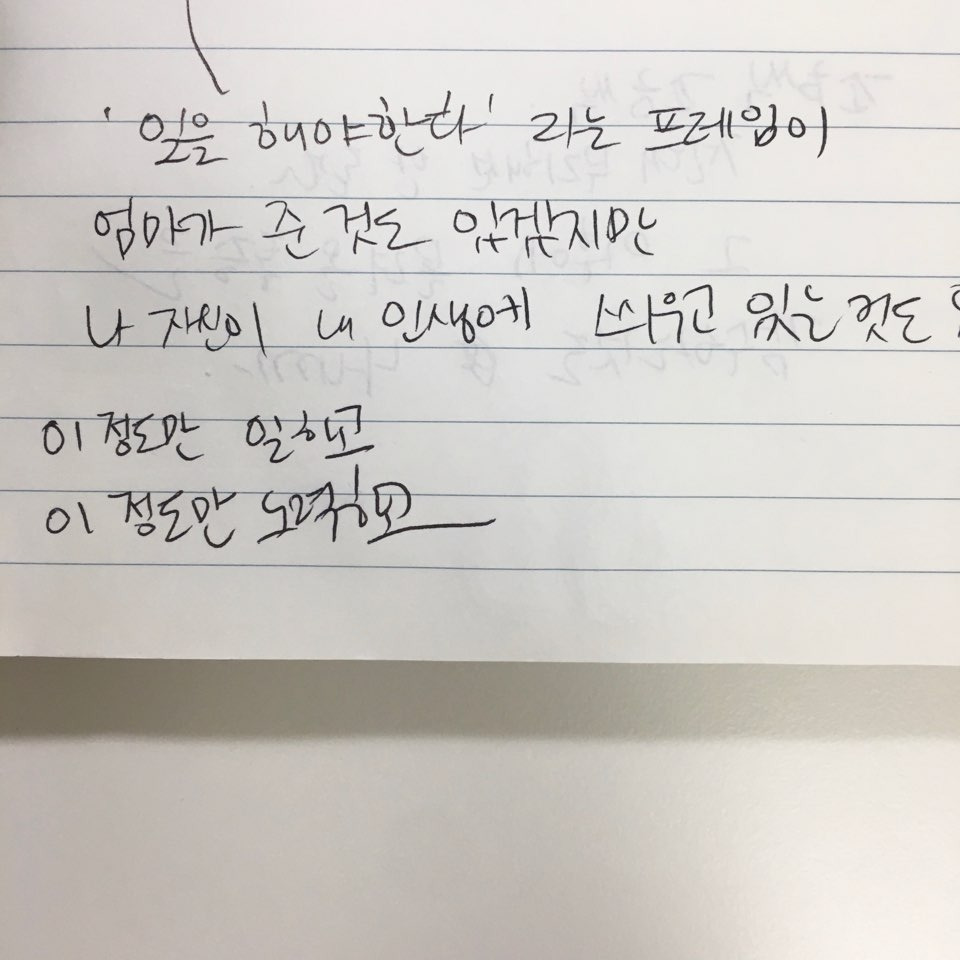 '일을 해야한다' 라는 프레임이
엄마가 준 것도 있겠지만
나 자신이 내 인생에 씌우고 있는 것도
이 정도만 일하고
이 정도만 노력하고